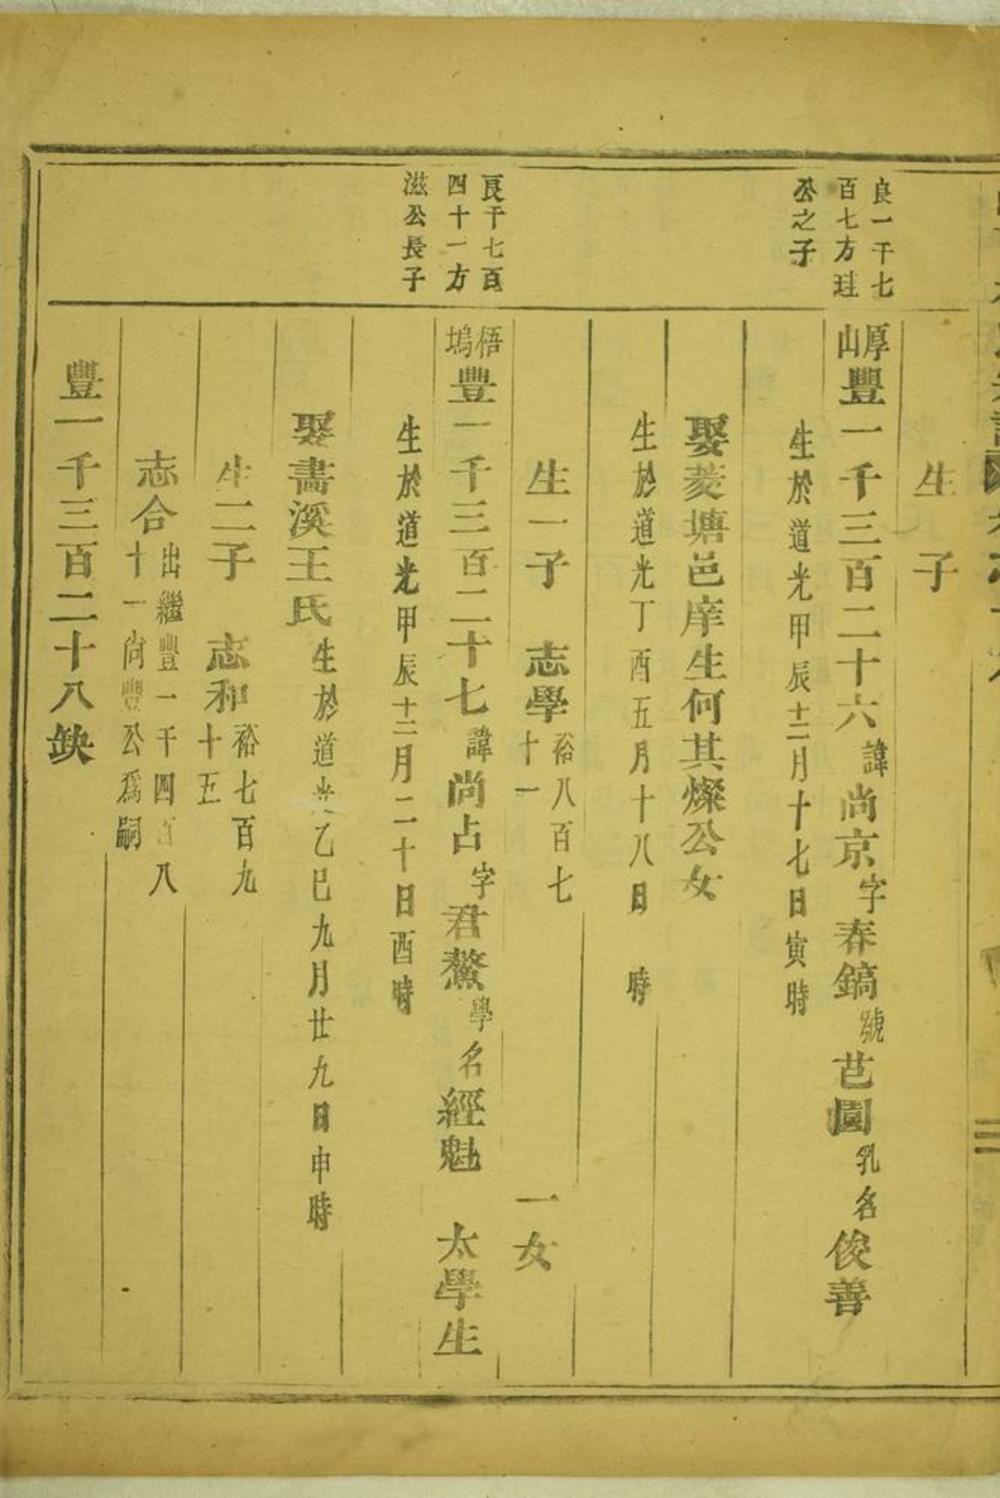 生　子
良一千七
百七方珪
公之子
厚山豐一千三百二十六諱尚京字春鎬號芑園乳名俊善
生於道光甲辰十二月十七日寅時
娶菱塘邑庠生何其燦公女
生於道光丁酉五月十八日　時
生一子　志學裕八百七十一　一女
良千七百
四十一方
滋公長子
梧塢豐一千三百二十七諱尚占字君鰲學名經魁　太學生
生於道光甲辰十二月二十日酉時
娶畫溪王氏生於道光乙巳九月廿九日申時
生二子　志和裕七百九十五
志合出繼豐一千四百八十一尚豐公為嗣
豐一千三百二十八缺